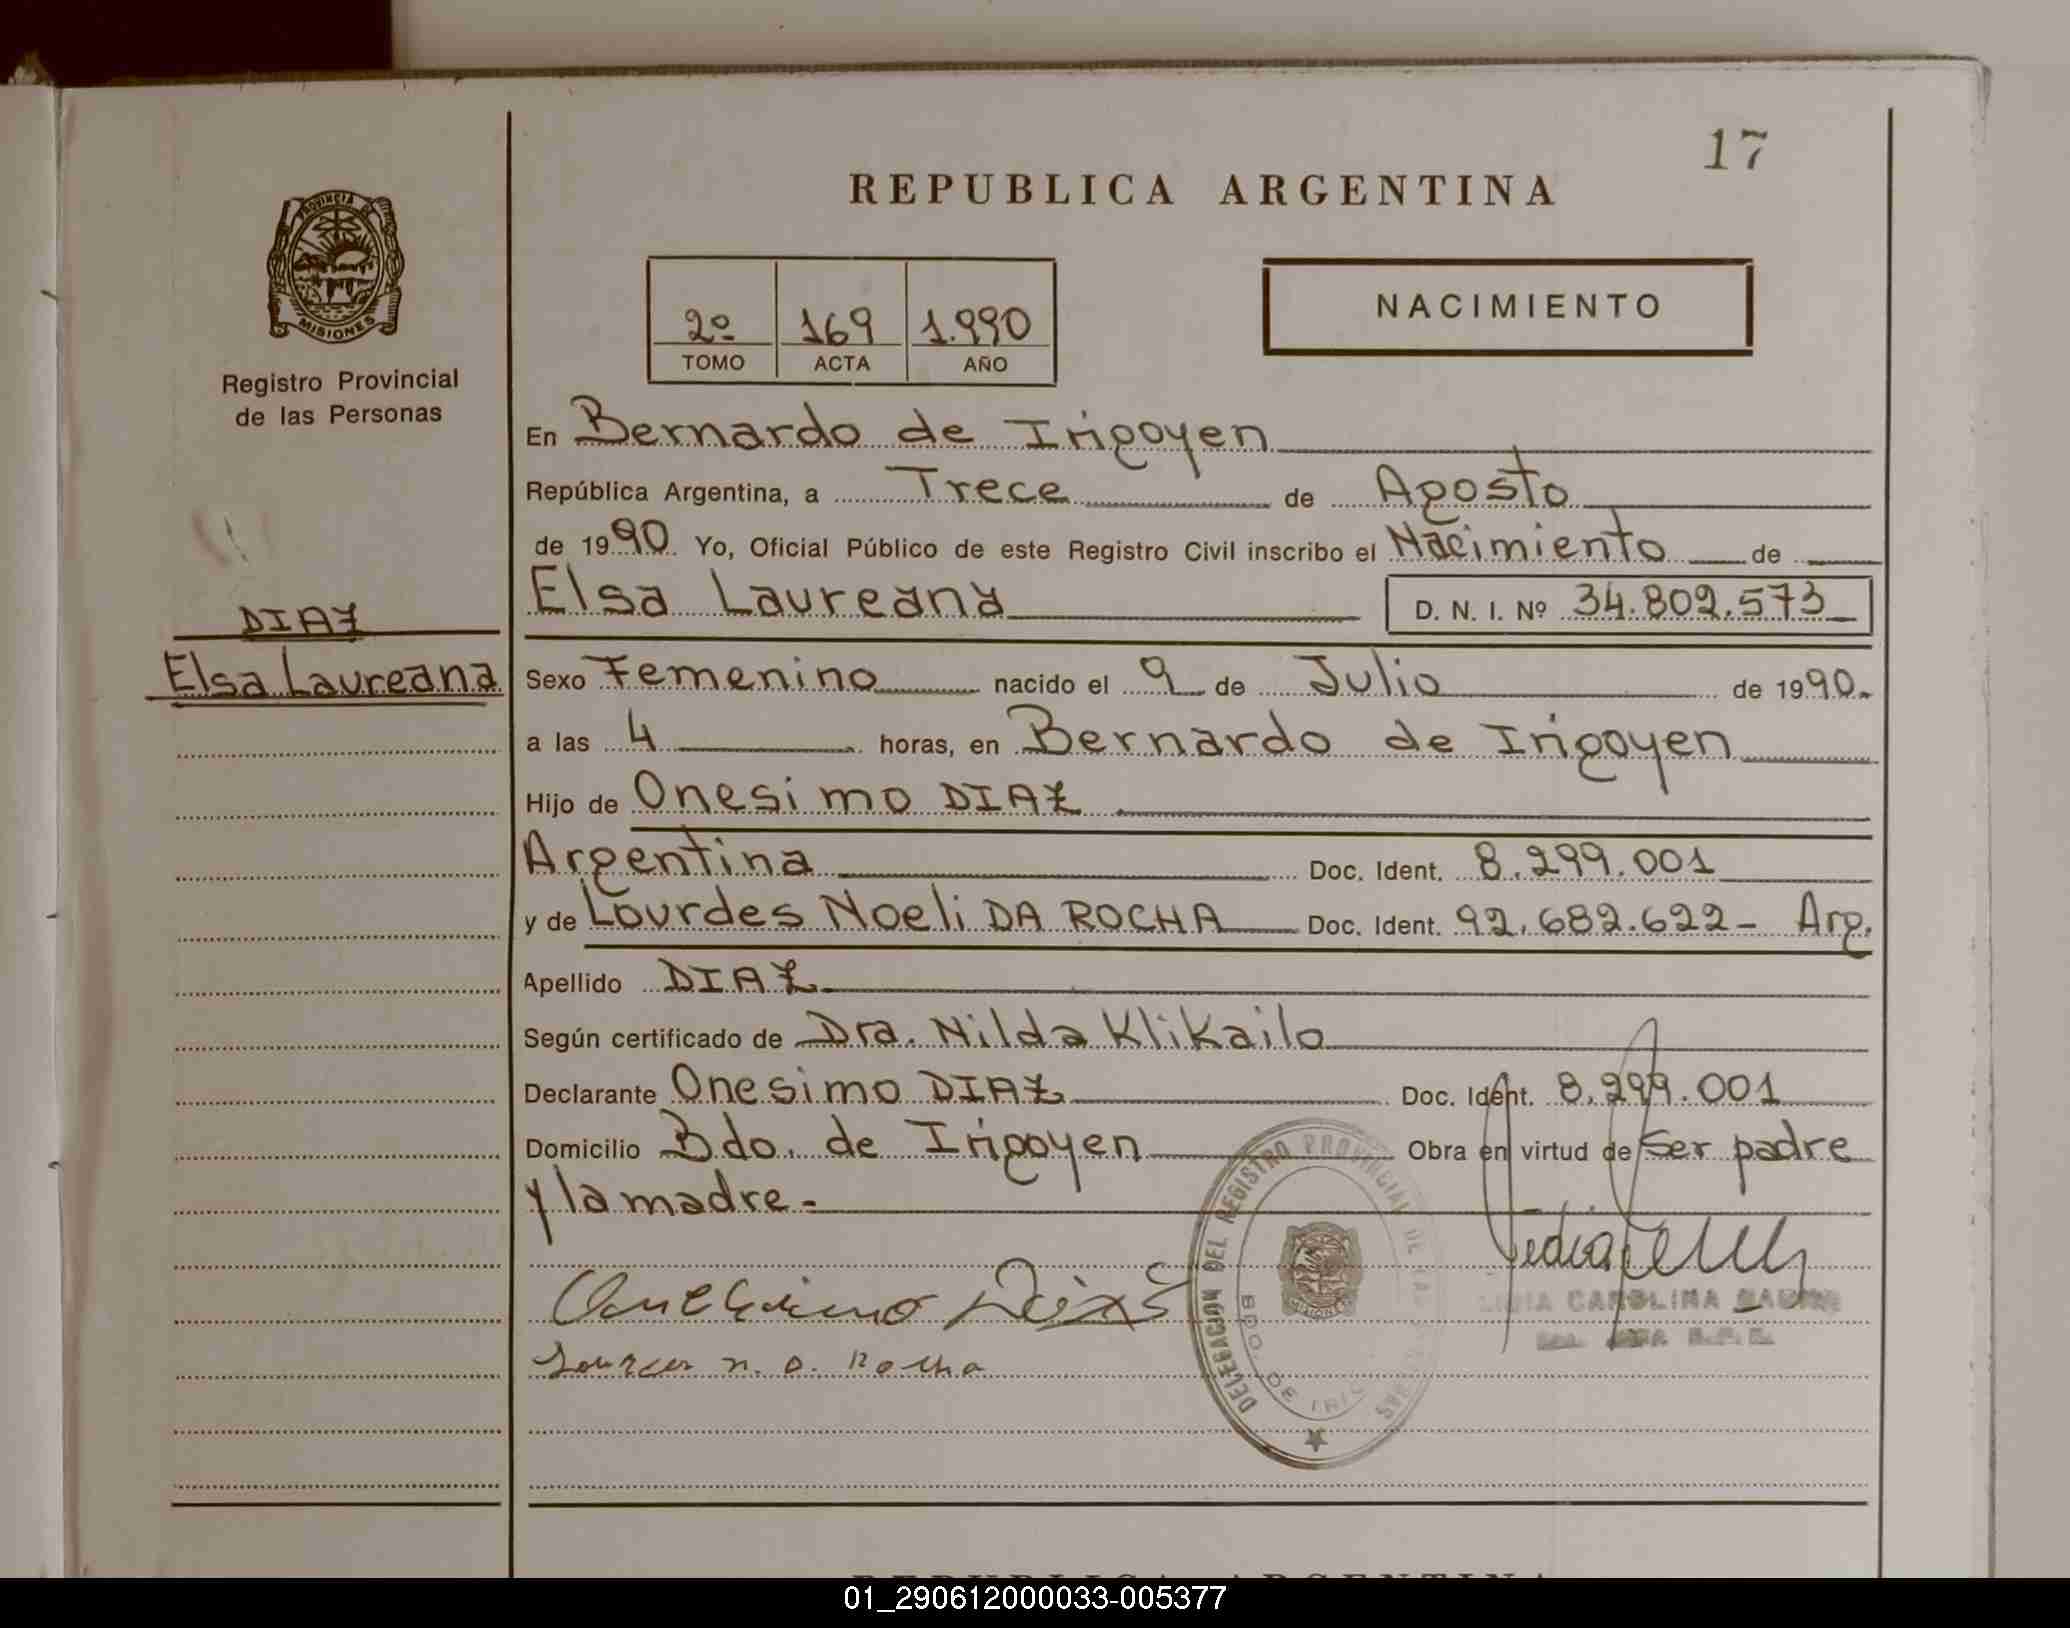 17
REPUBLICA ARGENTINA
PROVINCIA DE
MISIONES
Registro Provincial
de las Personas
2º 169 1.990
TOMO ACTA AÑO
NACIMIENTO
En Bernardo de Irigoyen
República Argentina, a Trece de Agosto
de 1990 Yo, Oficial Público de este Registro Civil inscribo el Nacimiento de
Elsa Laureana D. N. I. Nº 34.802.573
DIAZ
Elsa Laureana
Sexo Femenino nacido el 9 de Julio de 1990.
a las 4 horas, en Bernardo de Irigoyen
Hijo de Onesimo DIAZ
Argentina Doc. Ident. 8.299.001
y de Lourdes Noeli DA ROCHA Doc. Ident. 92.682.622- Arg.
Apellido DIAZ
Según certificado de Dra. Nilda Klikailo
Declarante Onesimo DIAZ Doc. Ident. 8.299.001
Domicilio Bdo. de Irigoyen Obra en virtud de ser padre
y la madre.-
DELEGACION DEL REGISTRO PROVINCIAL DE LAS
BDO. DE IRIG
MISIONES
CAROLINA
REPUBLICA ARGENTINA
01_290612000033-005377